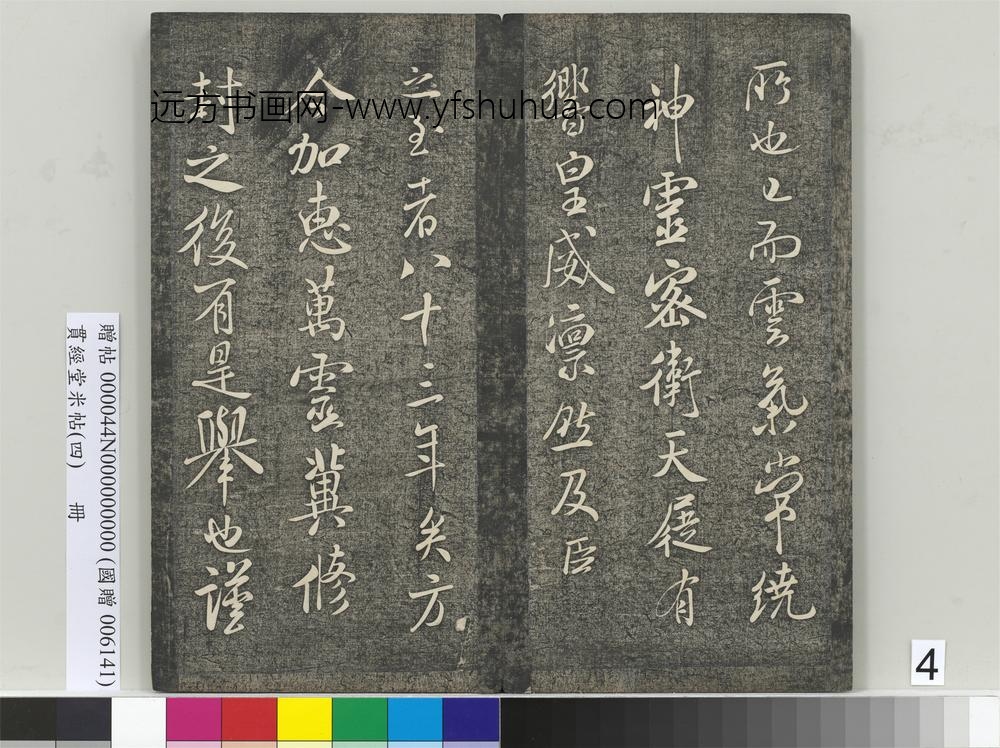 所也已而雲氣常繞
神靈密衛天有
響皇威凜然及臣
之至者八十二年矣方
今加惠萬靈冀修
封之後有是舉也謹
远方书画网-www.yfshuhua.com
贈帖 000044N000000000 (國贈 006141)
貫經堂米帖(四) 冊
4